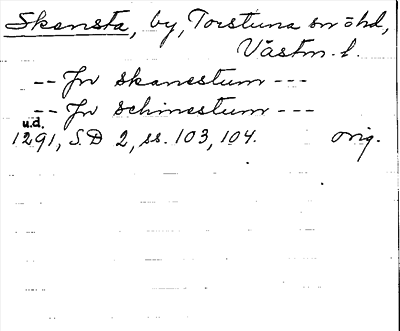 Skansta, by, Torstuna sn o hd,
Västm. l.
-- Jn skanestum ---
-- Jn schinestum ---
u.d.
1291, SD 2, ss. 103, 104. orig.